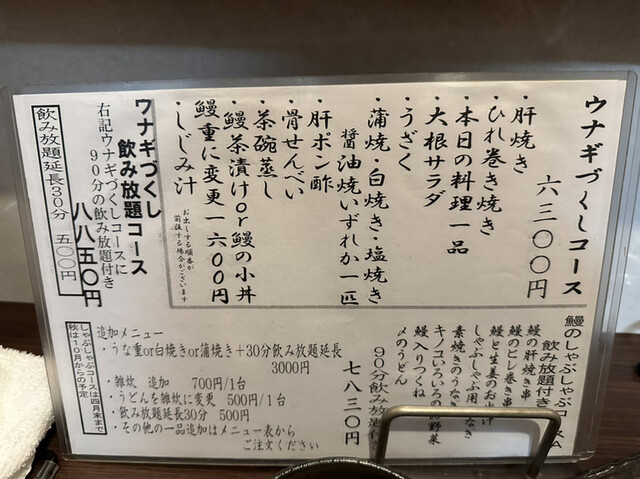 ウナギづくしコース
六三〇〇円
・肝焼き
・ひれ巻き焼き
・本日の料理一品
・大根サラダ
・うざく
・蒲焼・白焼き・塩焼き
醤油焼いずれか一匹
・肝ポン酢
・骨せんべい
・茶碗蒸し
・鰻茶漬けor鰻の小丼
鰻重に変更一六〇〇円
・しじみ汁
お出しする順番が
前後する場合がございます
ウナギづくし
飲み放題コース
右記ウナギづくしコースに
90分の飲み放題付き
八八五〇円
飲み放題延長30分 五〇〇円
鰻のしゃぶしゃぶコ
飲み放題付き
鰻の肝串焼
鰻のヒレ巻き串
鰻と生姜のお
しゃぶしゃぶ用
素焼きのうなぎ
キノコいろいろ
野菜
鰻入りつくね
〆のうどん
90分飲み放題付
七八三〇円
追加メニュー
・うな重or白焼きor蒲焼き+30分飲み放題延長
3000円
・雑炊 追加 700円/1台
・うどんを雑炊に変更 500円/1台
・飲み放題延長30分 500円
・その他の一品追加はメニュー表から
ご注文ください
しゃぶしゃぶコースは四月末まで
秋は10月からの予定